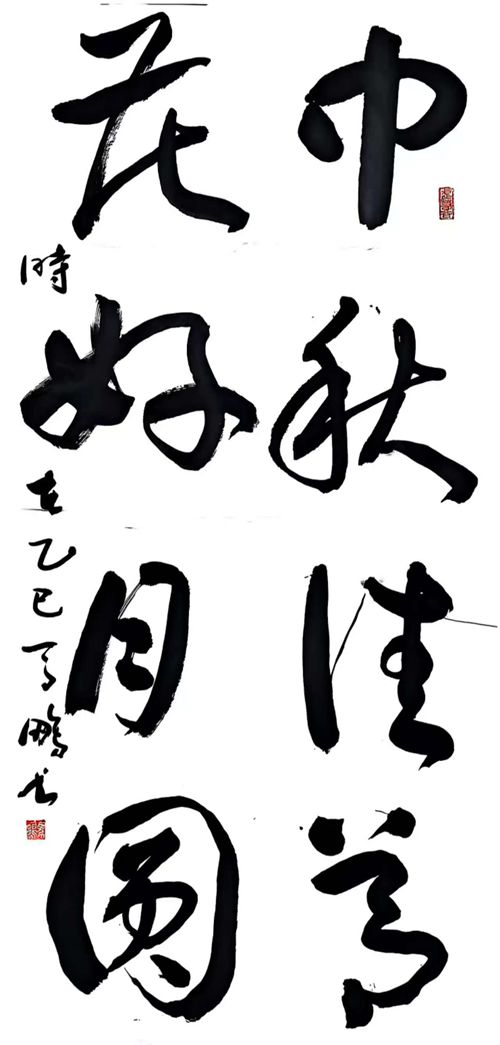 中秋佳节
花好月圆
時在乙巳 鹏书